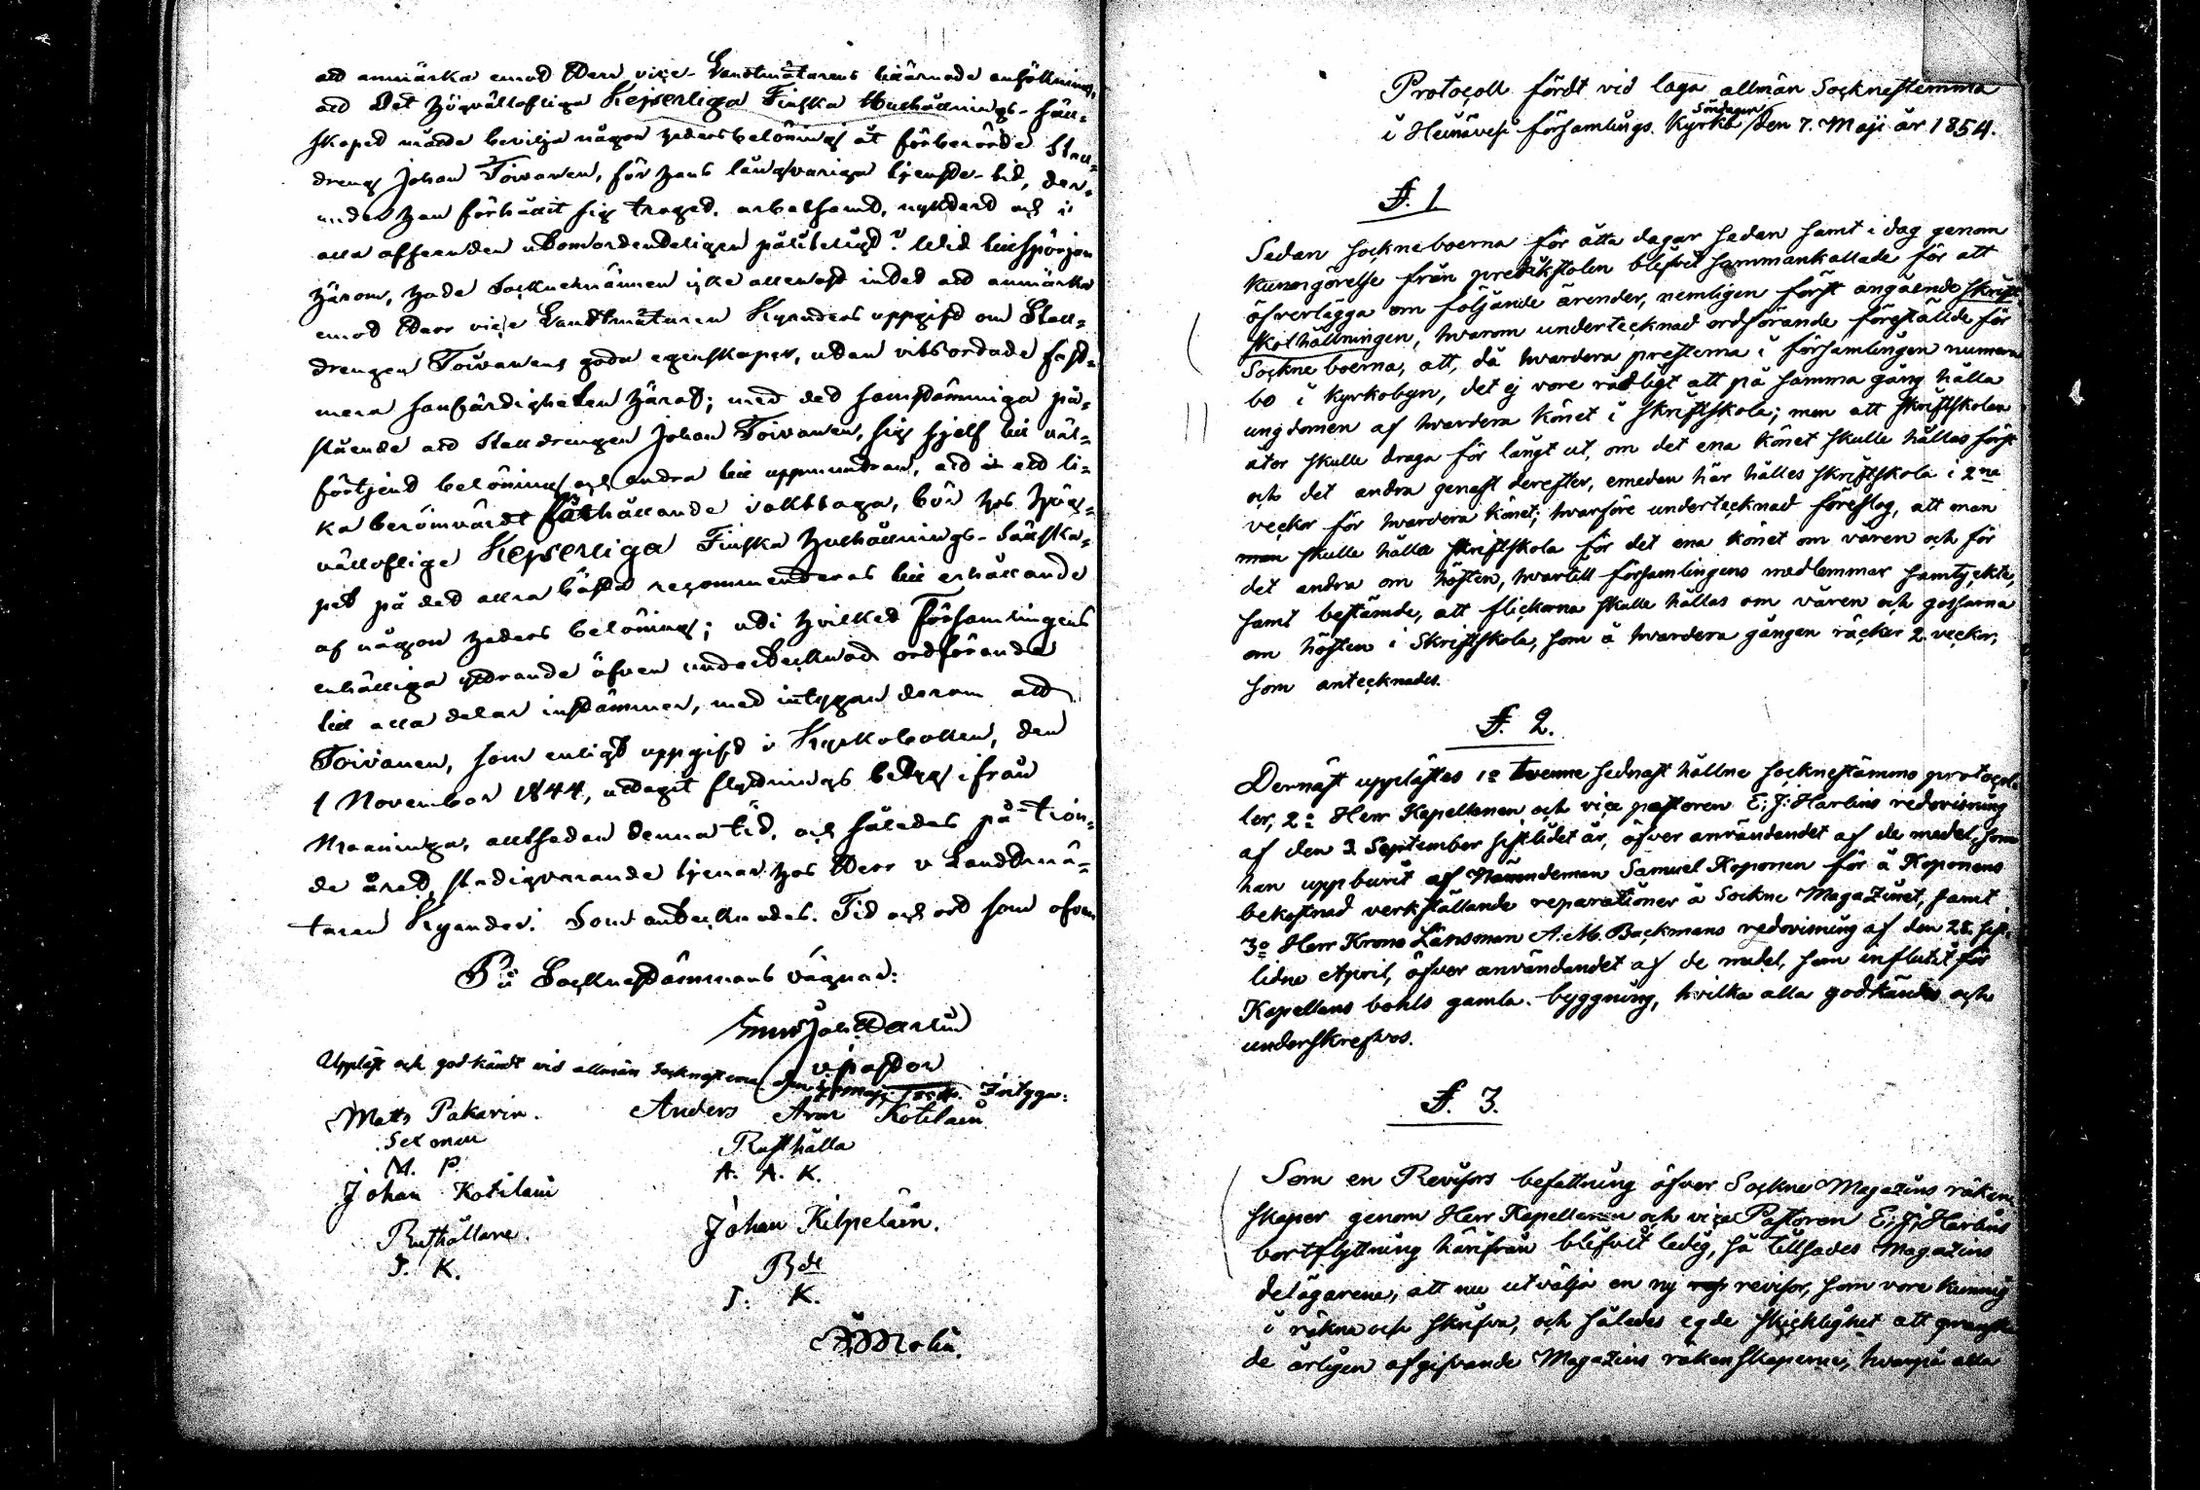 att anmärka emot Herr vice Landtmätarens biärnade anhållning,
att Det Högvällofliga Kejserliga Finska Hushållnings-Säll-
skapet måtte bevilja någon heders belöning åt förberörde Stall-
dreng Johan Toivanen, för hans långvariga tjenste-tid, der-
under han förhållit sig troget, arbetsamt, nycktert och i
alla afseenden utomordentligen pålitligt? Wid tillspörjan
härom, hade Socknemännen icke allenast intet att anmärka
emot Herr vice Landtmätaren Kyanders uppgift om Stall-
drengen Toivanens goda egenskaper, utan vitsordade fast-
mera sanfärdigheten häraf; med det samstämmiga på-
stående att Stalldrengen Johan Toivanen, sig sjelf till väl-
förtjent belöning och andra till uppmuntran, att li-
ka berömvärdt förhållande iakttaga, bör hos Hög-
vällofliga Kejserliga Finska Hushållnings-Sällska-
pet på det allra bästa recommenderas till erhållande
af någon heders belöning; uti hvilket Församlingens
enhälliga yttrande äfven undertecknad ordförande
till alla delar instämmer, med intygan derom att
Toivanen, som enligt uppgift i Kyrkoboken, den
1 November 1844, uttagit flyttnings betyg ifrån
Maaninga, alltsedan denna tid, och således på tion-
de året, stadigvarande tjenar hos Herr v Landtmä-
taren Kyander. Som antecknades. Tid och ort som ofvan
På Sockne stämmans vägnar:
Joh: Harlin
v pastor
Uppläst och godkändt vid allmän socknestemma den 7 maj 1854. Intyga:
Matts Pakarin.
Sexman
M. P.
Johan Kotilain
Rusthållare.
J. K.
Anders Aron Kotilain
Rusthålla
A. A. K.
Johan Kilpeläin.
Rde
J. K.
Molin.
Protocoll fördt vid laga allmän Socknestemma
i Heinävesi församlings Kyrka Söndagen den 7. Maji år 1854.
§. 1
Sedan sockneboerna för åtta dagar sedan samt i dag genom
kungörelse från predikstolen blifvit sammankallade för att
öfverlägga om följande ärender, nemligen först angående skrift-
skolhållningen, hvarom undertecknad ordförande föreställde för
Sockneboerna, att, då hvardera presterna i församlingen numera
bo i kyrkobyn, det ej vore rådligt att på samma gång hålla
ungdomen af hvardera könet i skriftskola; men att skriftskolan
åter skulle draga för långt ut, om det ena könet skulle hållas först
och det andra genast derefter, emedan här hålles skriftskola i 2ne
veckor för hvardera könet; hvarföre undertecknad föreslog, att man
man skulle hålla skriftskola för det ena könet om våren och för
det andra om hösten, hvartill församlingens medlemmar samtyckte,
samt bestämde, att flickorna skulle hållas om våren och gossarna
om hösten i Skriftskola, som å hvardera gången räcker 2 veckor,
som antecknades.
§. 2.
Dernäst upplästes 1o tvenne sednast hållne socknestämmo protocol-
ler, 2o Herr Kapellanen och vice pastoren E: J: Harlins redovisning
af den 3 September sistlidet år, öfver användandet af de medel, som
han uppburit af Nämndeman Samuel Koponen för å Koponens
bekostnad verkställande reparationer å Sockne Magazinet, samt
3o Herr Krono Länsman A: M: Backmans redovisning af den 28 sist-
lidne April, öfver användandet af de medel, som influtit för
Kapellans bohls gamla byggning, hvilka alla godkändes och
underskrefvos.
§. 3.
Som en Revisors befattning öfver Sockne Magazins räken-
skaper genom Herr Kapellanen och vice Pastoren E: J: Harlins
bortflyttning härifrån blifvit ledig, så tillsades Magazins
delägarene, att nu utvälja en ny revisor, som vore kunnig
i räkna och skrifva, och således egde skicklighet att granska
de årligen afgifvande Magazins räkenskaperne, hvarpå alla